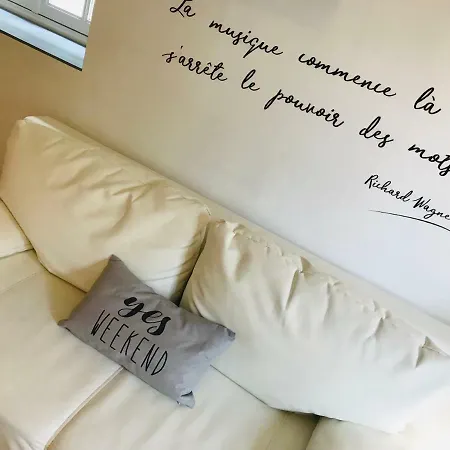 La musique commence là
s'arrête le pouvoir des mots
Richard Wagne
yes
WEEKEND